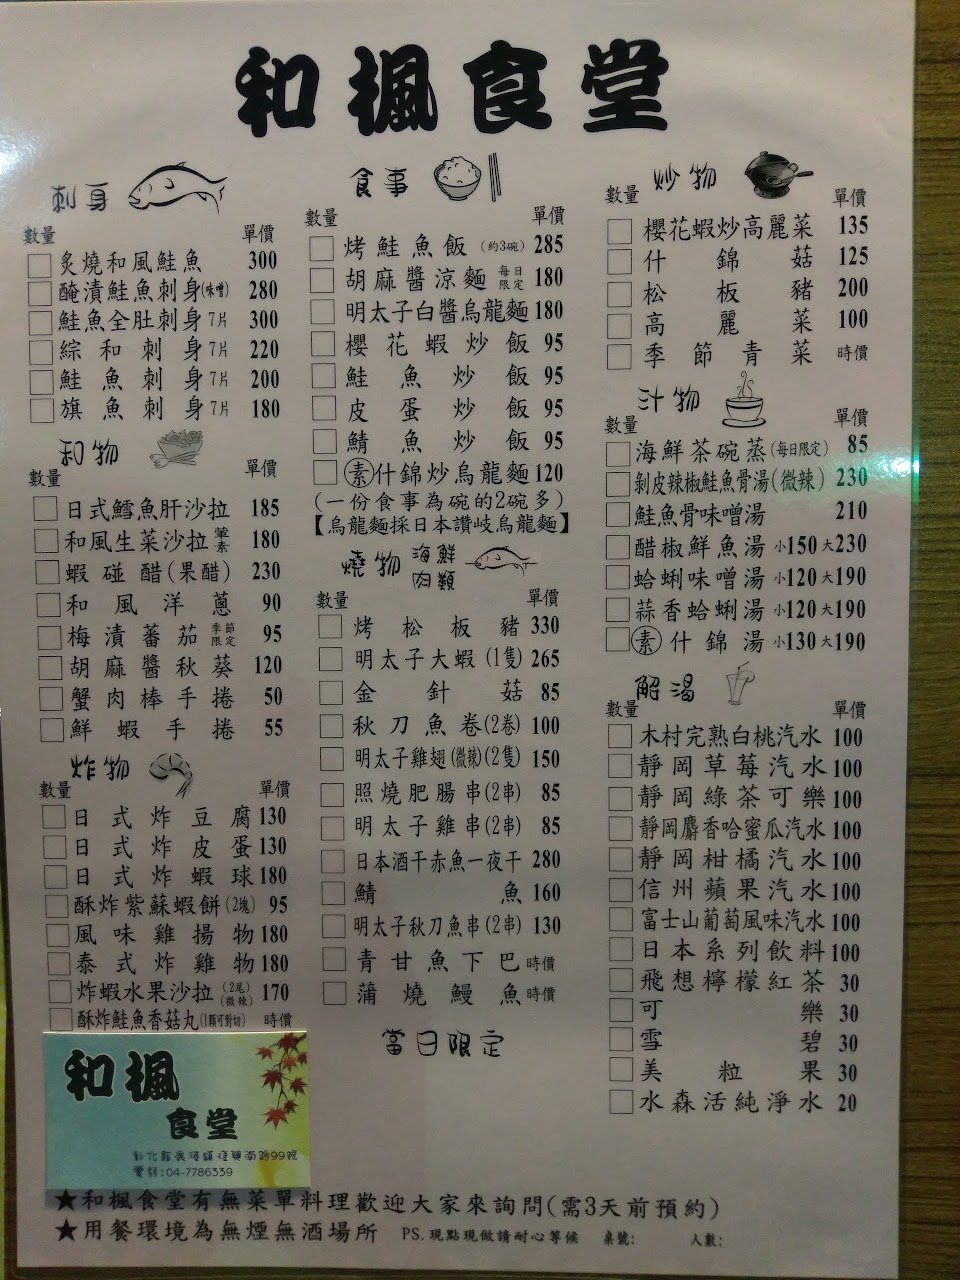 和楓食堂
刺身
數量 單價
炙燒和風鮭魚 300
醃漬鮭魚刺身(味噌) 280
鮭魚全肚刺身7片 300
綜和刺身7片 220
鮭魚刺身7片 200
旗魚刺身7片 180
和物
數量 單價
日式鱈魚肝沙拉 185
和風生菜沙拉 葷素 180
蝦碰醋(果醋) 230
和風洋蔥 90
梅漬蕃茄 季節限定 95
胡麻醬秋葵 120
蟹肉棒手捲 50
鮮蝦手捲 55
炸物
數量 單價
日式炸豆腐 130
日式炸皮蛋 130
日式炸蝦球 180
酥炸紫蘇蝦餅(2塊) 95
風味雞揚物 180
泰式炸雞物 180
炸蝦水果沙拉(2尾)(微辣) 170
酥炸鮭魚香菇丸(1顆可對切) 時價
食事
數量 單價
烤鮭魚飯(約3碗) 285
胡麻醬涼麵 每日限定 180
明太子白醬烏龍麵 180
櫻花蝦炒飯 95
鮭魚炒飯 95
皮蛋炒飯 95
鯖魚炒飯 95
素什錦炒烏龍麵 120
(一份食事為碗的2碗多)
【烏龍麵採日本讚岐烏龍麵】
燒物 海鮮 肉類
數量 單價
烤松板豬 330
明太子大蝦(1隻) 265
金針菇 85
秋刀魚卷(2卷) 100
明太子雞翅(微辣)(2隻) 150
照燒肥腸串(2串) 85
明太子雞串(2串) 85
日本酒干赤魚一夜干 280
鯖魚 160
明太子秋刀魚串(2串) 130
青甘魚下巴 時價
蒲燒鰻魚 時價
當日限定
炒物
數量 單價
櫻花蝦炒高麗菜 135
什錦菇 125
松板豬 200
高麗菜 100
季節青菜 時價
汁物
數量 單價
海鮮茶碗蒸(每日限定) 85
剝皮辣椒鮭魚骨湯(微辣) 230
鮭魚骨味噌湯 210
醋椒鮮魚湯 小150大230
蛤蜊味噌湯 小120大190
蒜香蛤蜊湯 小120大190
素什錦湯 小130大190
解渴
數量 單價
木村完熟白桃汽水 100
靜岡草莓汽水 100
靜岡綠茶可樂 100
靜岡麝香哈蜜瓜汽水 100
靜岡柑橘汽水 100
信州蘋果汽水 100
富士山葡萄風味汽水 100
日本系列飲料 100
飛想檸檬紅茶 30
可樂 30
雪碧 30
美粒果 30
水森活純淨水 20
和楓
食堂
電話:04-7786339
★和楓食堂有無菜單料理歡迎大家來詢問(需3天前預約)
★用餐環境為無煙無酒場所 PS.現點現做請耐心等候 桌號: 人數: